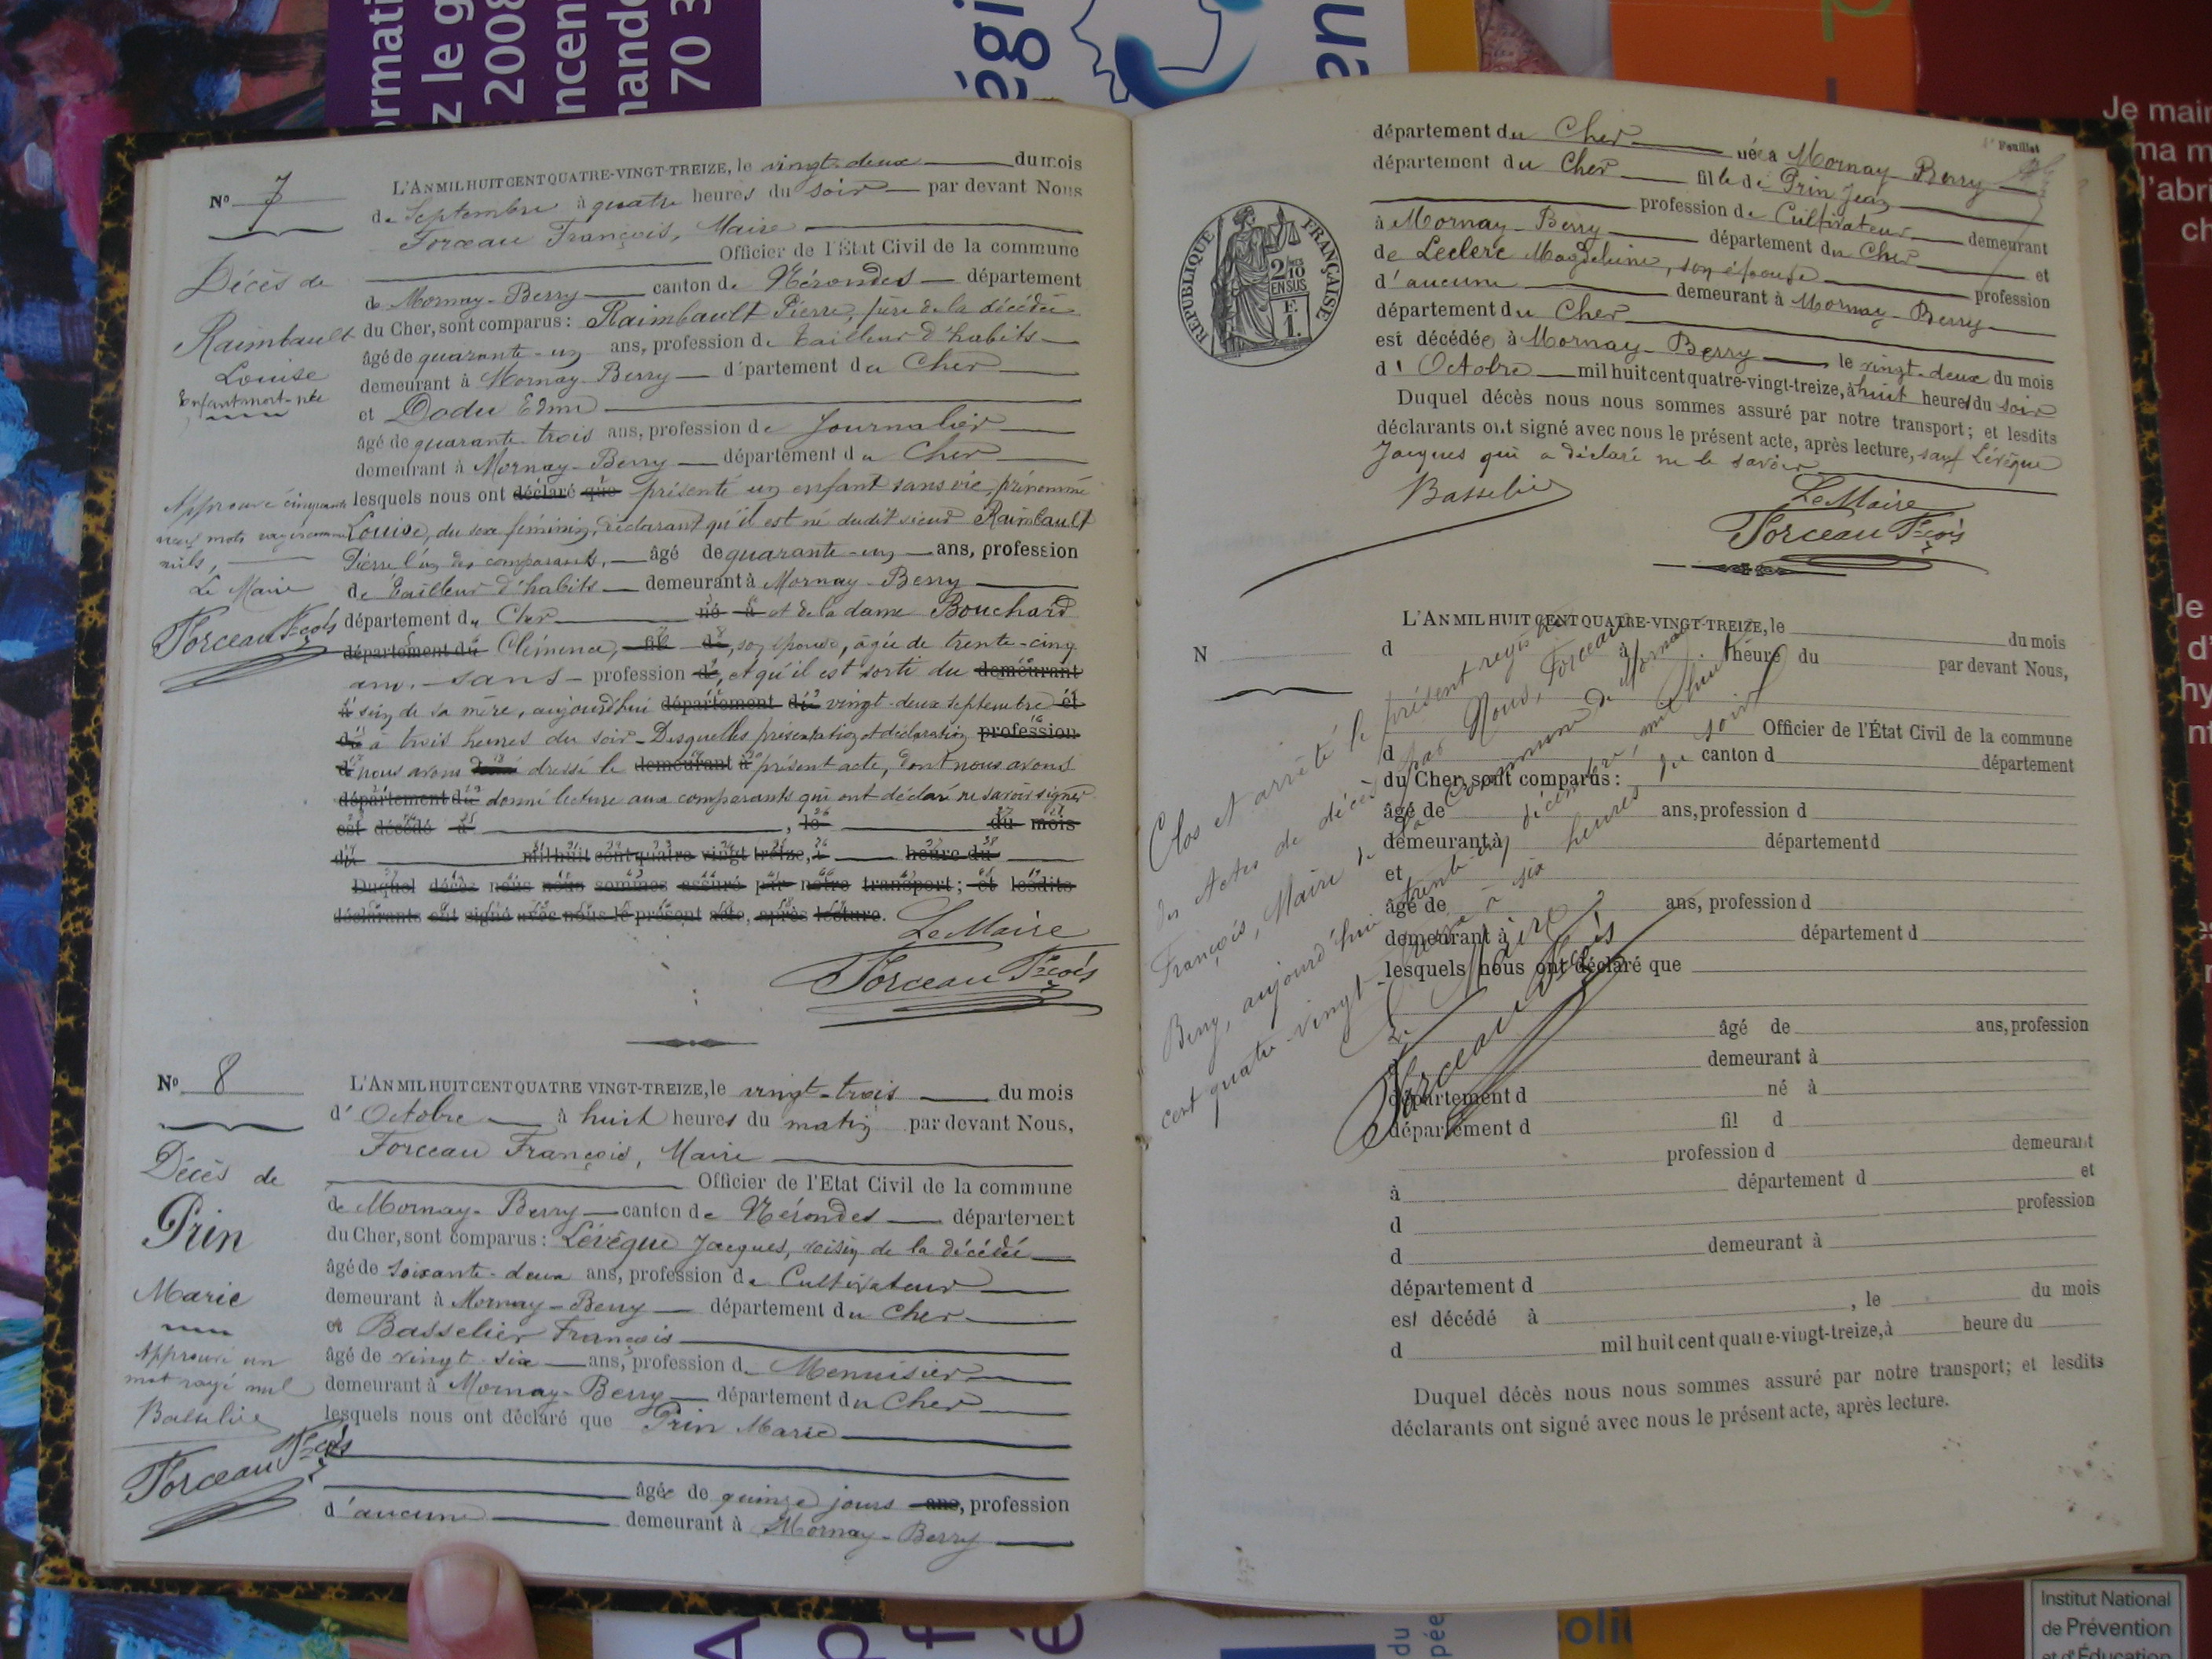 ormati
z le g
2008
ncen
mande
70 3
égi
en
Je main
ma m
l'abri
ch
N° 7
L'AN MIL HUIT CENT QUATRE-VINGT-TREIZE, le vingt-deux du mois
de Septembre à quatre heures du soir par devant Nous
Forceau François, Maire
Officier de l'État Civil de la commune
de Mornay-Berry canton de Nérondes département
du Cher, sont comparus : Raimbault Pierre, père de la décédée
âgé de quarante-un ans, profession de tailleur d'habits
demeurant à Mornay-Berry département du Cher
et Dodu Edme
âgé de quarante-trois ans, profession de Journalier
demeurant à Mornay-Berry département du Cher
lesquels nous ont déclaré que présenté un enfant sans vie, prénommé
Louise, du sexe féminin, déclarant qu'il est né dudit sieur Raimbault
Pierre l'un des comparants, âgé de quarante-un ans, profession
de tailleur d'habits demeurant à Mornay-Berry
département du Cher né à et de la dame Bouchard
département du Clémence, fil de, son épouse, âgée de trente-cinq
ans, sans profession de, et qu'il est sorti du demeurant
à sein de sa mère, aujourd'hui département du vingt-deux septembre et
de à trois heures du soir - Desquelles présentation et déclaration profession
d nous avons dressé le demeurant à présent acte, dont nous avons
département du donné lecture aux comparants qui ont déclaré ne savoir signer
est décédé à , le du mois
d mil huit cent quatre vingt treize, à heure du
Duquel décès nous nous sommes assuré par notre transport ; et lesdits
déclarants ont signé avec nous le présent acte, après lecture.
Le Maire
Forceau Fçois
Décès de
Raimbault
Louise
Enfant mort-née
Approuvé cinquante
neuf mots rayés comme
nuls,
Le Maire
Forceau Fçois
N° 8
L'AN MIL HUIT CENT QUATRE VINGT-TREIZE, le vingt-trois du mois
d'Octobre à huit heures du matin par devant Nous,
Forceau François, Maire
Officier de l'Etat Civil de la commune
de Mornay-Berry canton de Nérondes département
du Cher, sont comparus : Lévêque Jacques, voisin de la décédée
âgé de soixante-deux ans, profession de Cultivateur
demeurant à Mornay-Berry département du Cher
et Basselier François
âgé de vingt-six ans, profession de Menuisier
demeurant à Mornay-Berry département du Cher
lesquels nous ont déclaré que Prin Marie
âgée de quinze jours ans, profession
d'aucune demeurant à Mornay-Berry
Décès de
Prin
Marie
Approuvé un
mot rayé nul
Basselier
Forceau Fçois
1er Feuillet
département du Cher née à Mornay-Berry
département du Cher fille de Prin Jean
profession de Cultivateur demeurant
à Mornay-Berry département du Cher et
de Leclerc Magdeleine, son épouse profession
d'aucune demeurant à Mornay-Berry
département du Cher
est décédée à Mornay-Berry le vingt-deux du mois
d'Octobre mil huit cent quatre-vingt-treize, à huit heures du soir
Duquel décès nous nous sommes assuré par notre transport ; et lesdits
déclarants ont signé avec nous le présent acte, après lecture, sauf Lévêque
Jacques qui a déclaré ne le savoir
Basselier
Le Maire
Forceau Fçois
RÉPUBLIQUE FRANÇAISE
2/10
EN SUS
F.
1.
N
L'AN MIL HUIT CENT QUATRE-VINGT-TREIZE, le du mois
d à heure du par devant Nous,
Officier de l'État Civil de la commune
d canton d département
du Cher, sont comparus :
âgé de ans, profession d
demeurant à département d
et
âgé de ans, profession d
demeurant à département d
lesquels nous ont déclaré que
âgé de ans, profession
d demeurant à
département d né à
département d fil d
profession d demeurant
à département d et
d profession
d demeurant à
département d
est décédé à , le du mois
d mil huit cent quatre-vingt-treize, à heure du
Duquel décès nous nous sommes assuré par notre transport; et lesdits
déclarants ont signé avec nous le présent acte, après lecture.
Clos et arrêté le présent registre
des Actes de décès par Nous, Forceau
François, Maire de la commune de Mornay
Berry, aujourd'hui trente-un décembre, mil huit
cent quatre-vingt-treize à six heures du soir
Le Maire
Forceau Fçois
Institut National
de Prévention
et d'Éducation